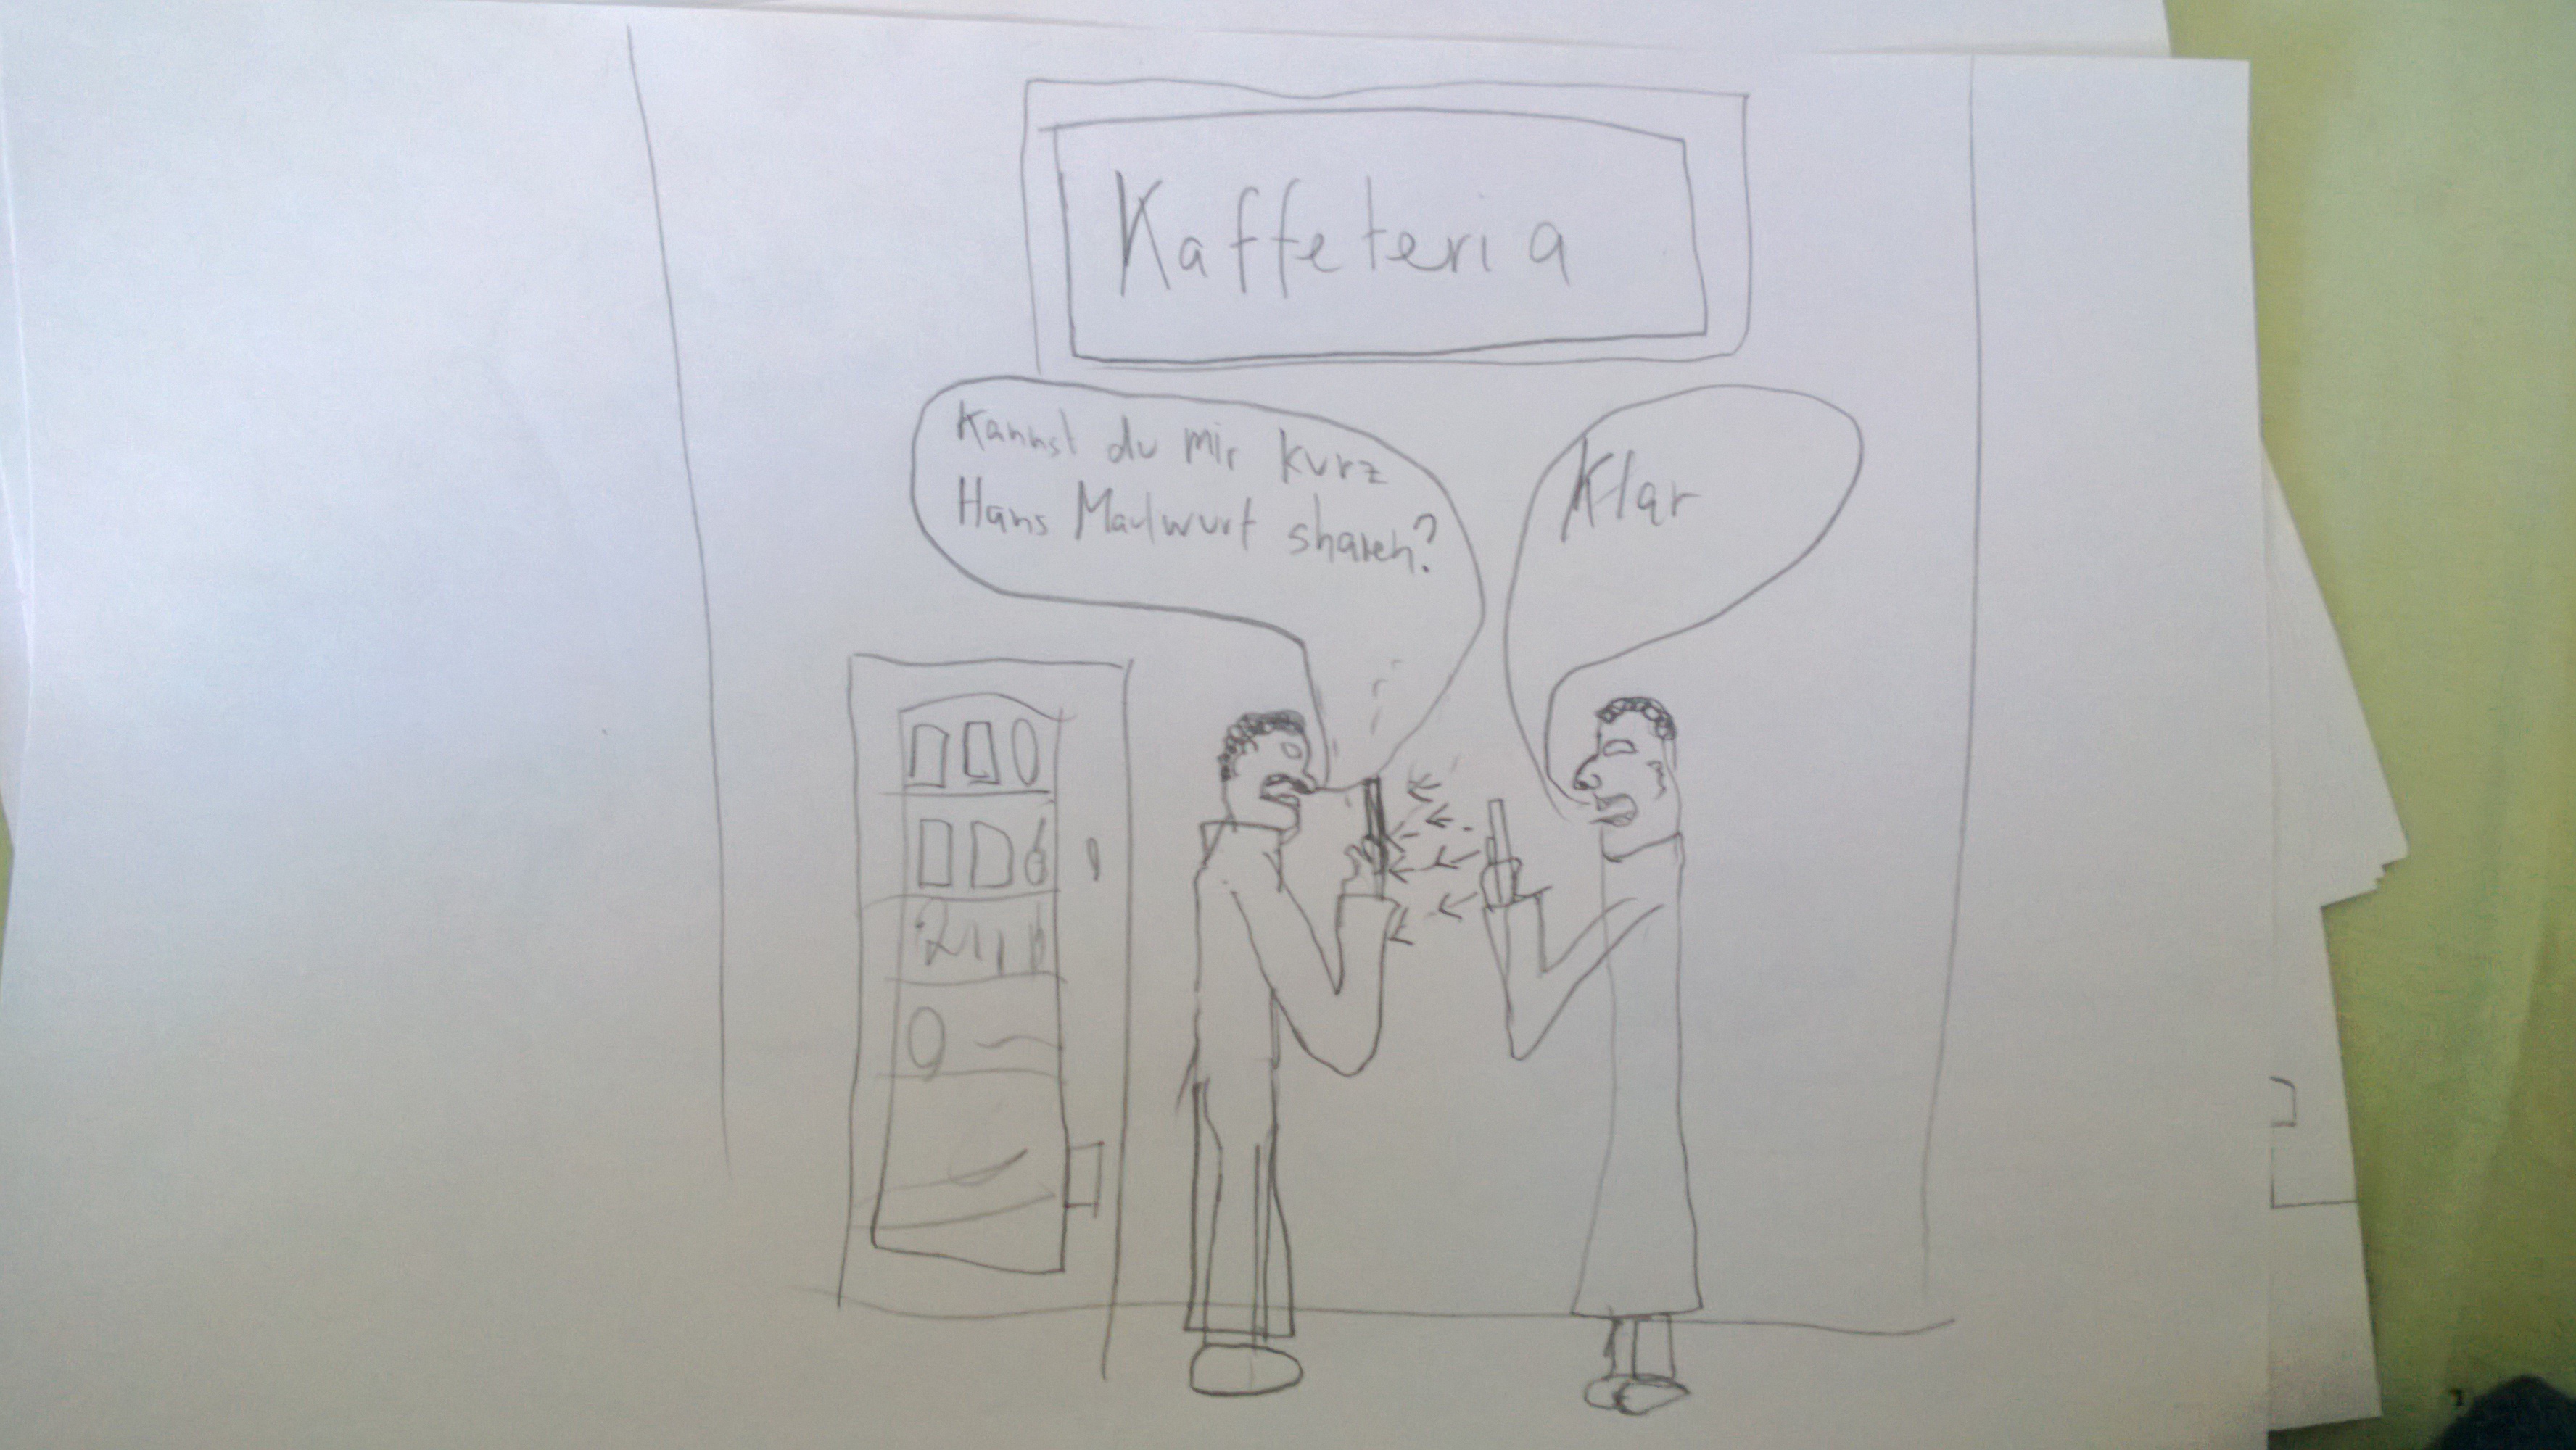 Kaffeteria
Kannst du mir kurz
Hans Maulwurf sharen?
Klar